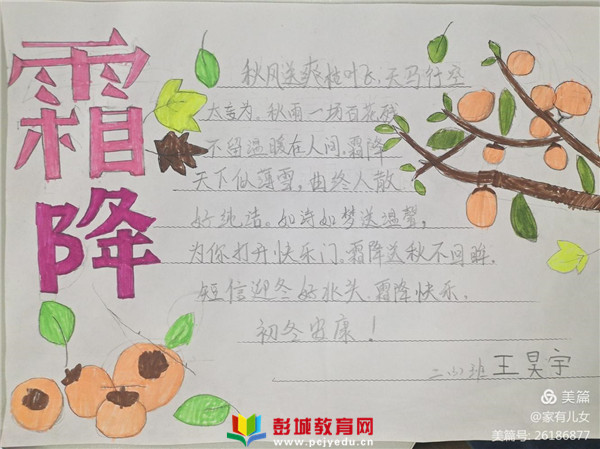 霜降
秋风送爽桂叶飞,天马行空
太吉为。秋雨一场百花残
不留温暖在人间。霜降
天下似薄雪,曲终人散
好纯洁。如诗如梦送温馨,
为你打开快乐门。霜降送秋不回眸,
短信迎冬好兆头。霜降快乐,
初冬安康!
二(4)班 王昊宇
彭城教育网
www.pcjyedu.cn
美篇
@家有儿女
美篇号: 26186877